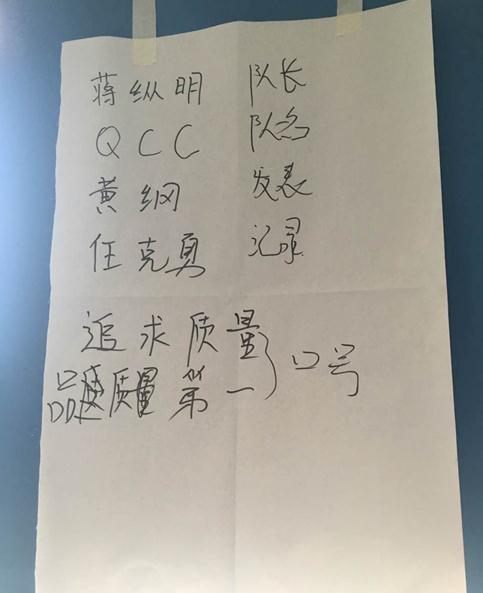 蒋纵明 队长
QCC 队名
黄纲 发表
任克勇 记录
追求质量
品质质量第一 口号